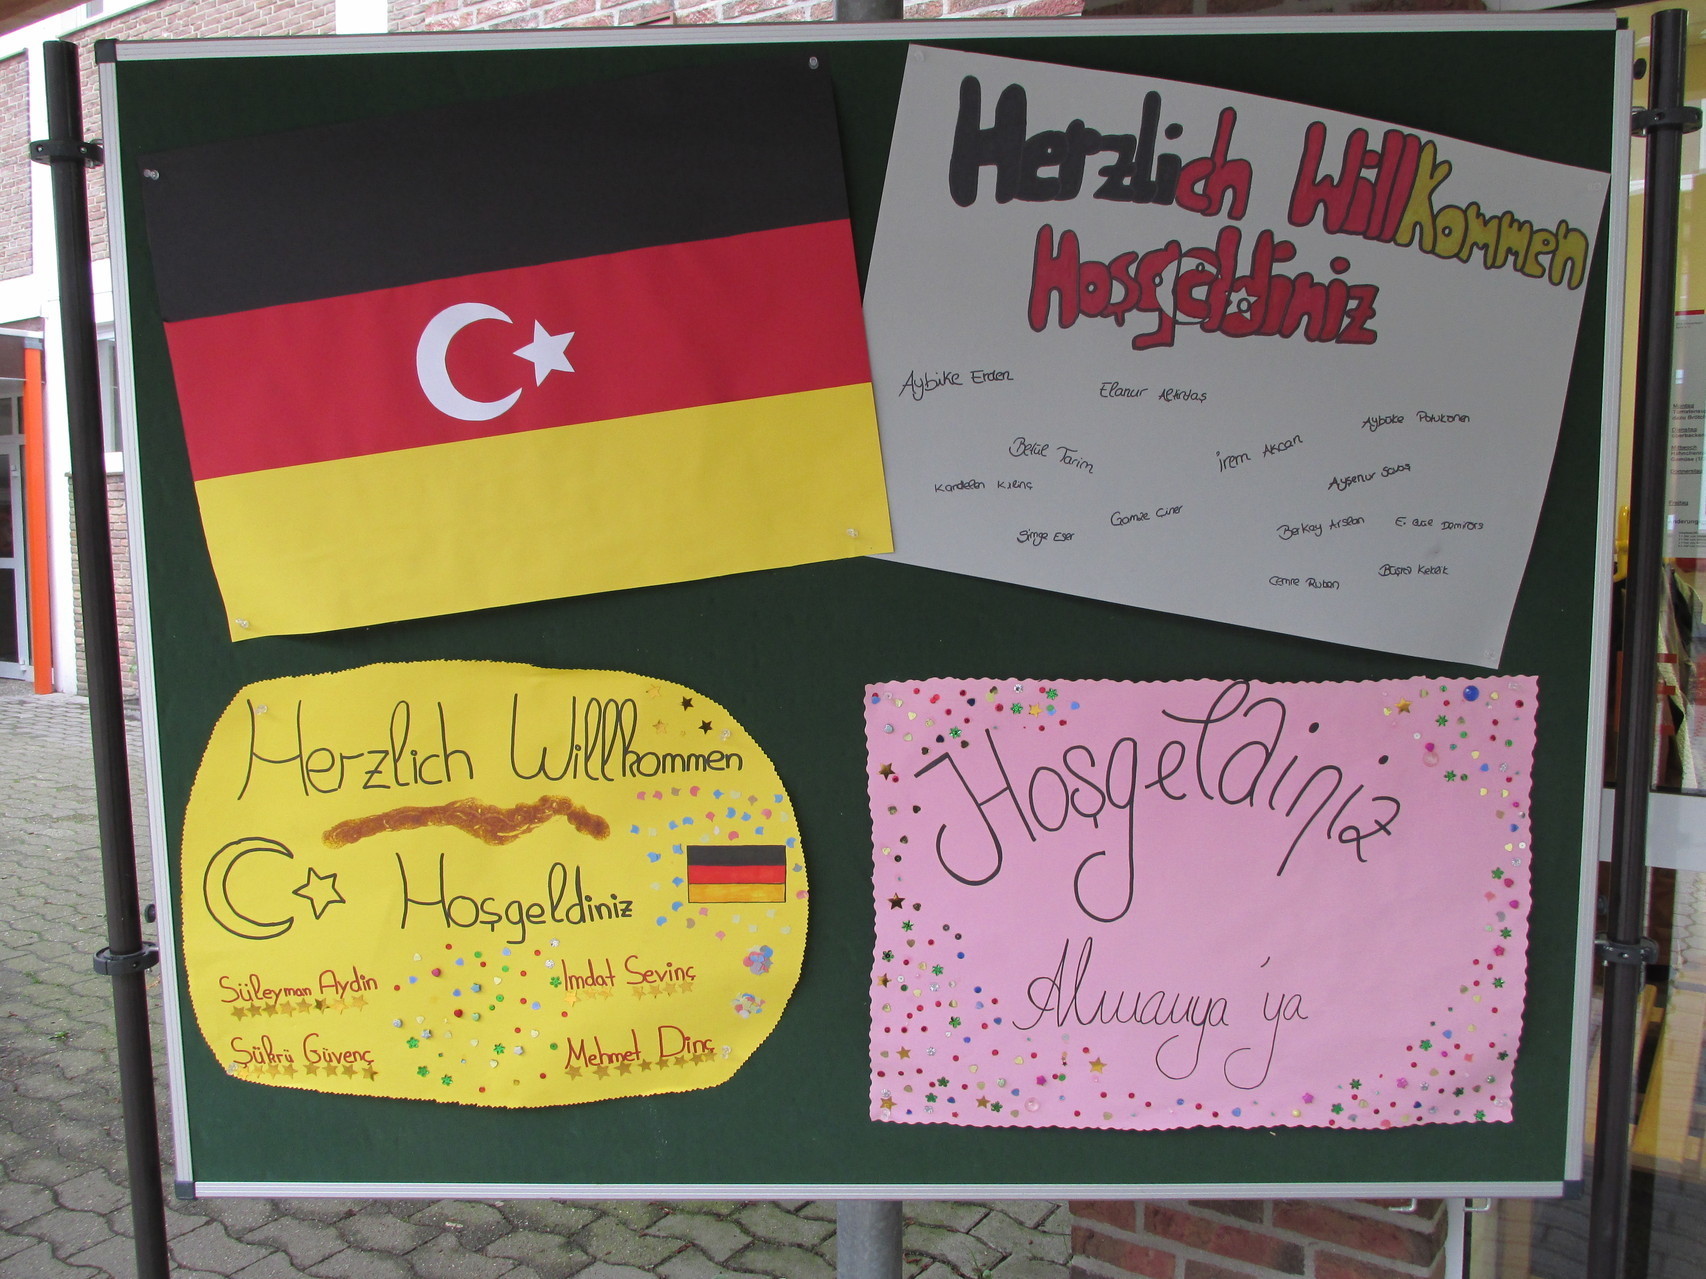 Herzlich Willkommen
Hoşgeldiniz
Aybike Erden
Elanur Altıntaş
Betül Tarim
İrem Akcan
Kardelen Kılınç
Ayşenur Savaş
Gamze Çiner
Simge Eser
Berkay Arslan
Cemre Ruben
Büşra
Herzlich Willkommen
Hoşgeldiniz
Süleyman Aydin
Imdat Sevinç
Şükrü Güvenç
Mehmet Dinç
Hoşgeldiniz
Almanya'ya